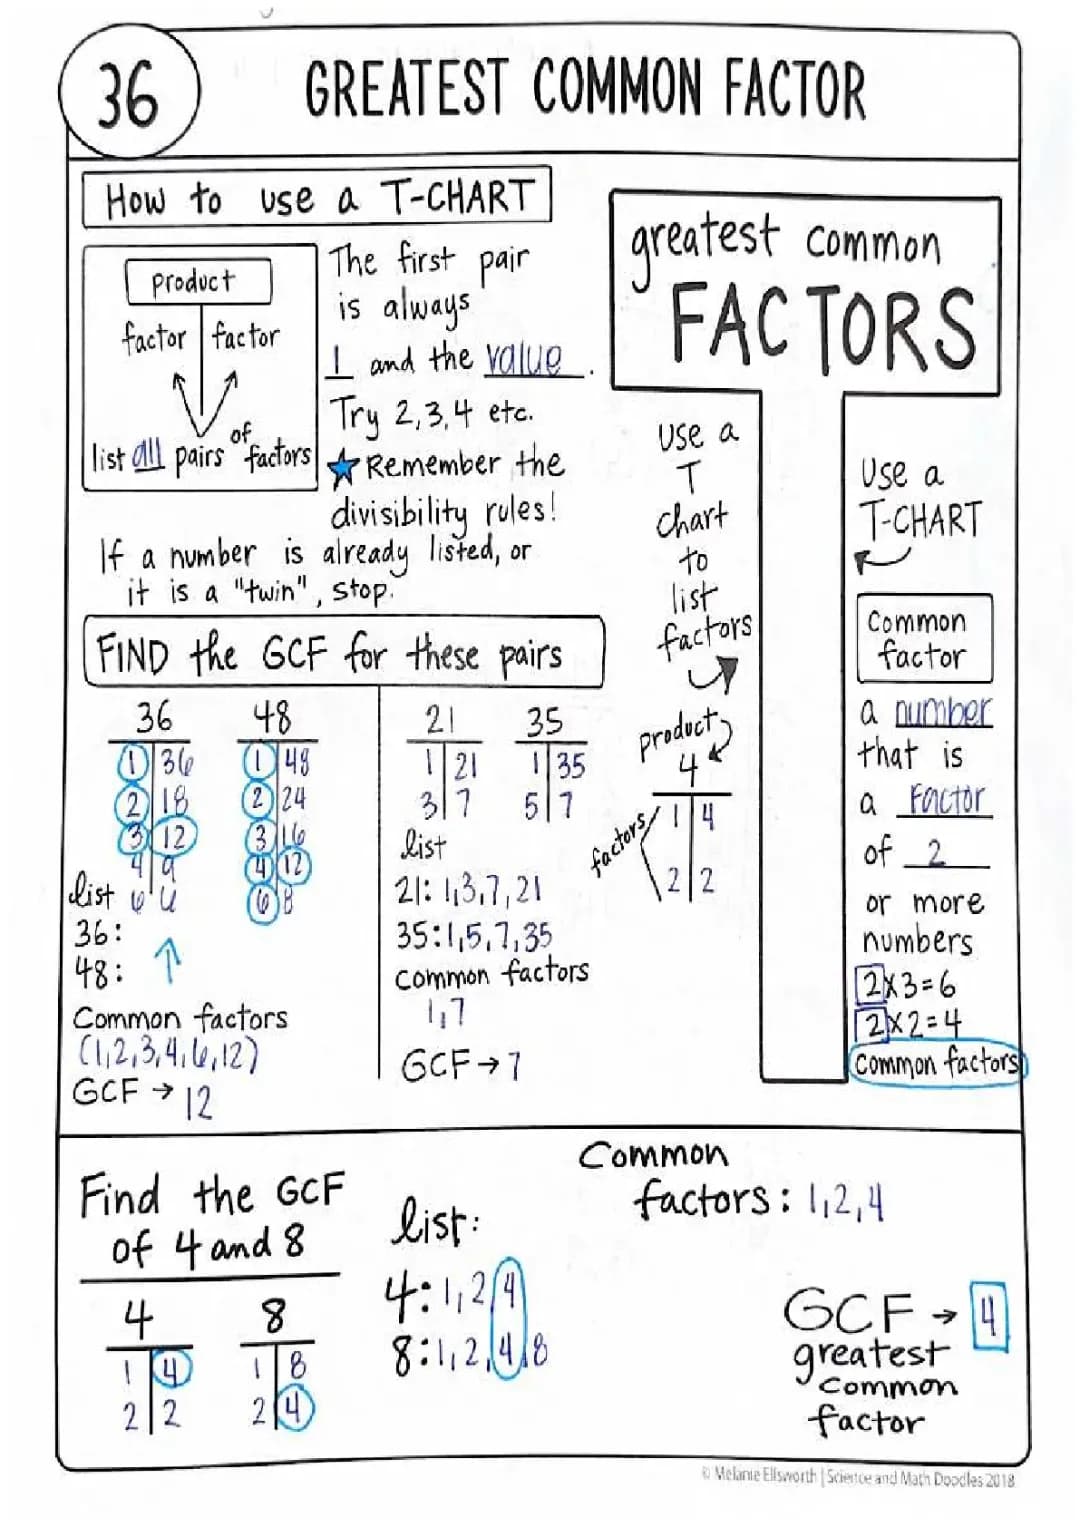 36
GREATEST COMMON FACTOR
How to use a T-CHART
product
factor | factor
list all pairs of factors
The first pair
is always
1 and the value.
Try 2,3,4 etc.
Remember the
divisibility rules!
If a number is already listed, or
it is a "twin", stop.
greatest common
FACTORS
USE a
T
chart
to
list
factors
product
4
factors
1 | 4
2 | 2
Use a
T-CHART
Common
factor
a number
that is
a Factor
of 2
or more
numbers
2x3=6
2x2=4
Common factors
FIND the GCF for these pairs
36
1 | 36
2 | 18
3 | 12
4 | 9
6 | 6
48
1 | 48
2 | 24
3 | 16
4 | 12
6 | 8
list
36:
48:
Common factors
(1,2,3,4,6,12)
GCF → 12
21
1 | 21
3 | 7
35
1 | 35
5 | 7
list
21: 1,3,7,21
35:1,5,7,35
Common factors
1,7
GCF → 7
Find the GCF
of 4 and 8
4
1 | 4
2 | 2
8
1 | 8
2 | 4
list:
4:1,2,4
8:1,2,4,8
Common
factors: 1,2,4
GCF → 4
greatest
common
factor
© Melanie Ellsworth | Science and Math Doodles 2018